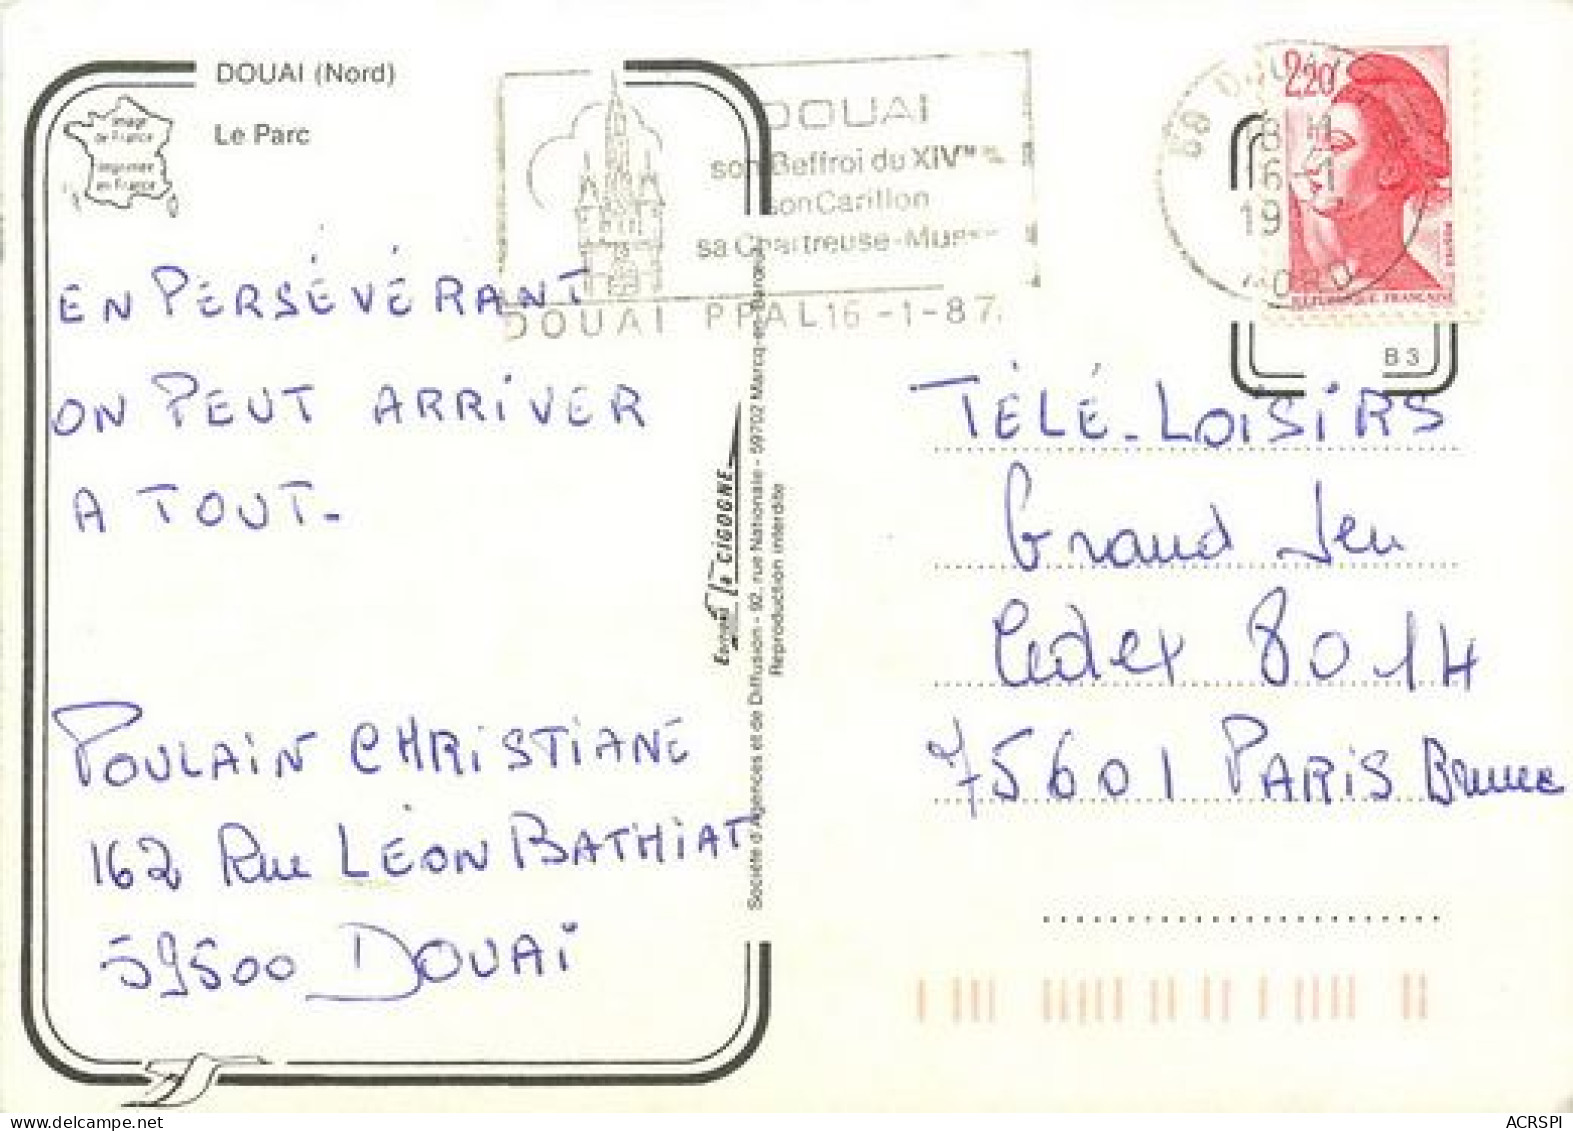 DOUAI (Nord)
Le Parc
image
de France
imprimée
en France
DOUAI
son Beffroi du XIVme S.
son Carillon
sa Chartreuse-Musée
DOUAI PPAL 16-1-87
59 DOUAI
8 H
16-1
19
NORD
2,20
REPUBLIQUE FRANÇAISE
B 3
EN PERSÉVÉRANT
ON PEUT ARRIVER
A TOUT.
POULAIN CHRISTIANE
162 Rue LÉON BATHIAT
59500 DOUAI
Europ
la CIGOGNE
Société d'Agences et de Diffusion - 92, rue Nationale - 59702 Marcq-en-Barœul
Reproduction interdite
TÉLÉ-LOISIRS
Grand Jeu
Cedex 8014
75601 PARIS Brune
ACRSPI